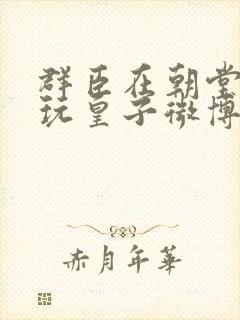 群臣在朝堂
玩皇子微博
赤月年華